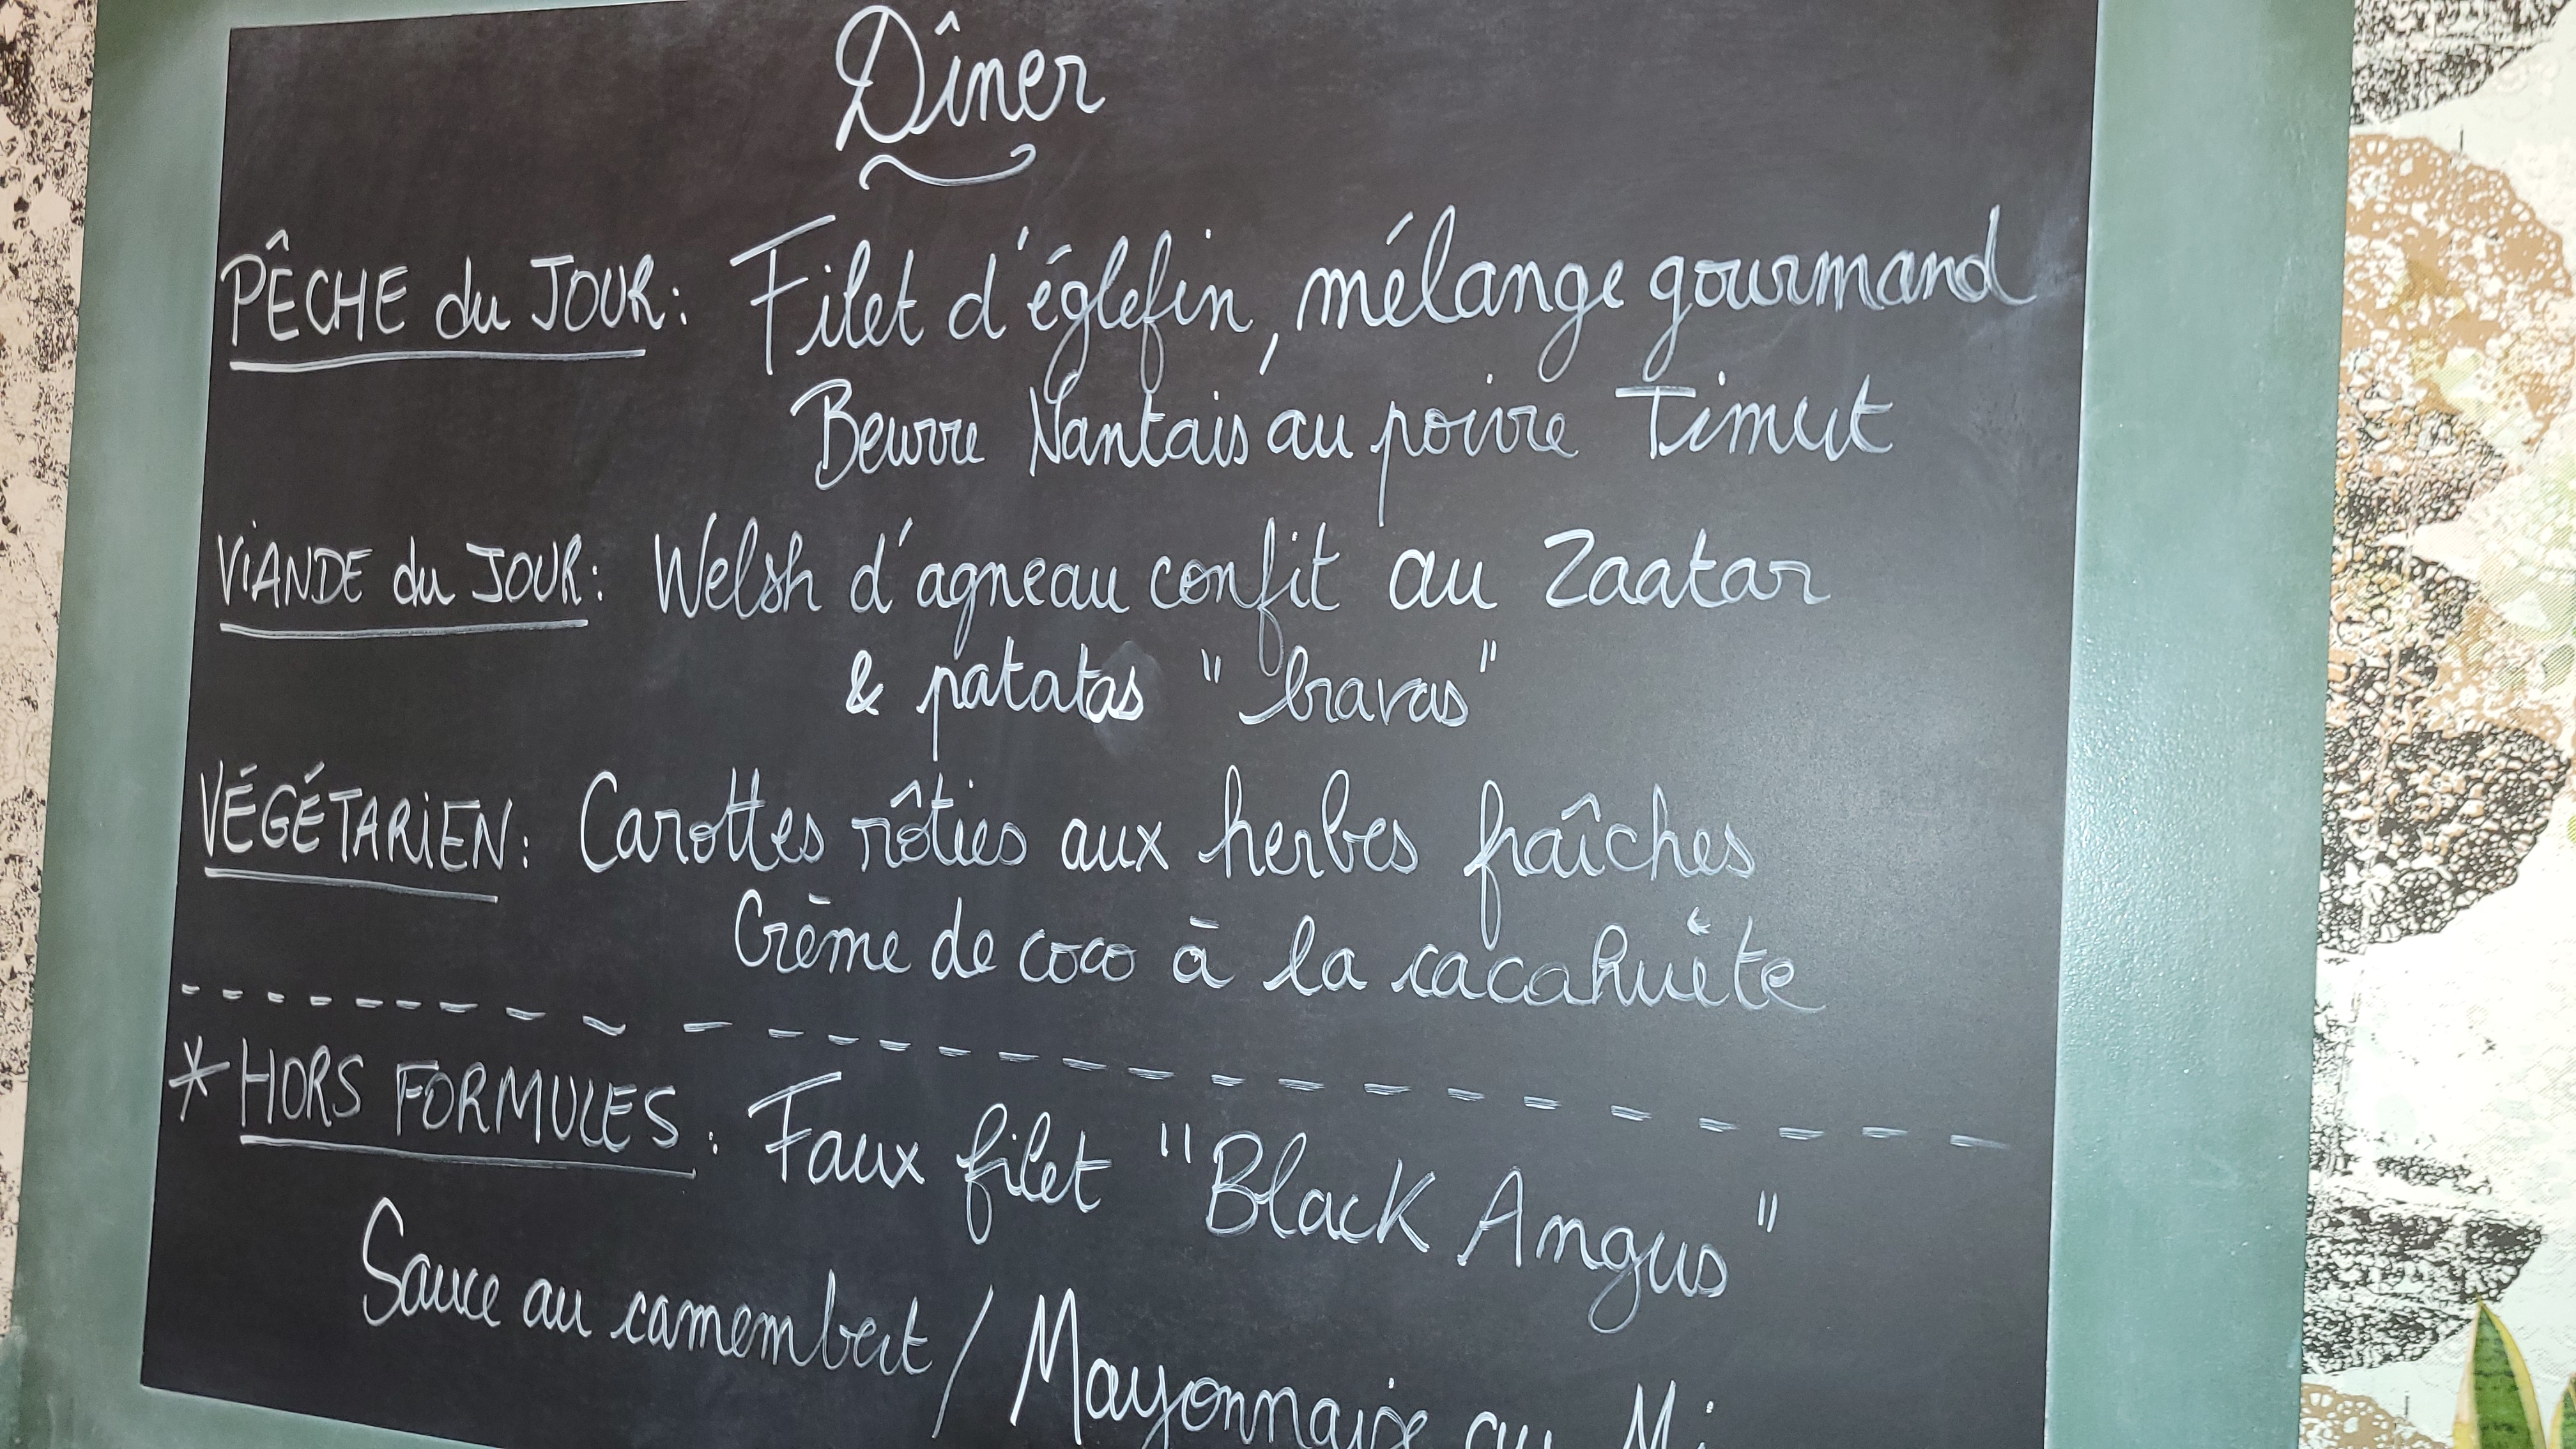 Dîner
PÊCHE du JOUR: Filet d'églefin, mélange gourmand
Beurre Nantais au poivre Timut
ViANDE du JOUR: Welsh d'agneau confit au Zaatar
& patatas "bravas"
VÉGÉTARiEN: Carottes rôties aux herbes fraîches
Crème de coco à la cacahuète
* HORS FORMULES: Faux filet "Black Angus"
Sauce au camembert / Mayonnaise au